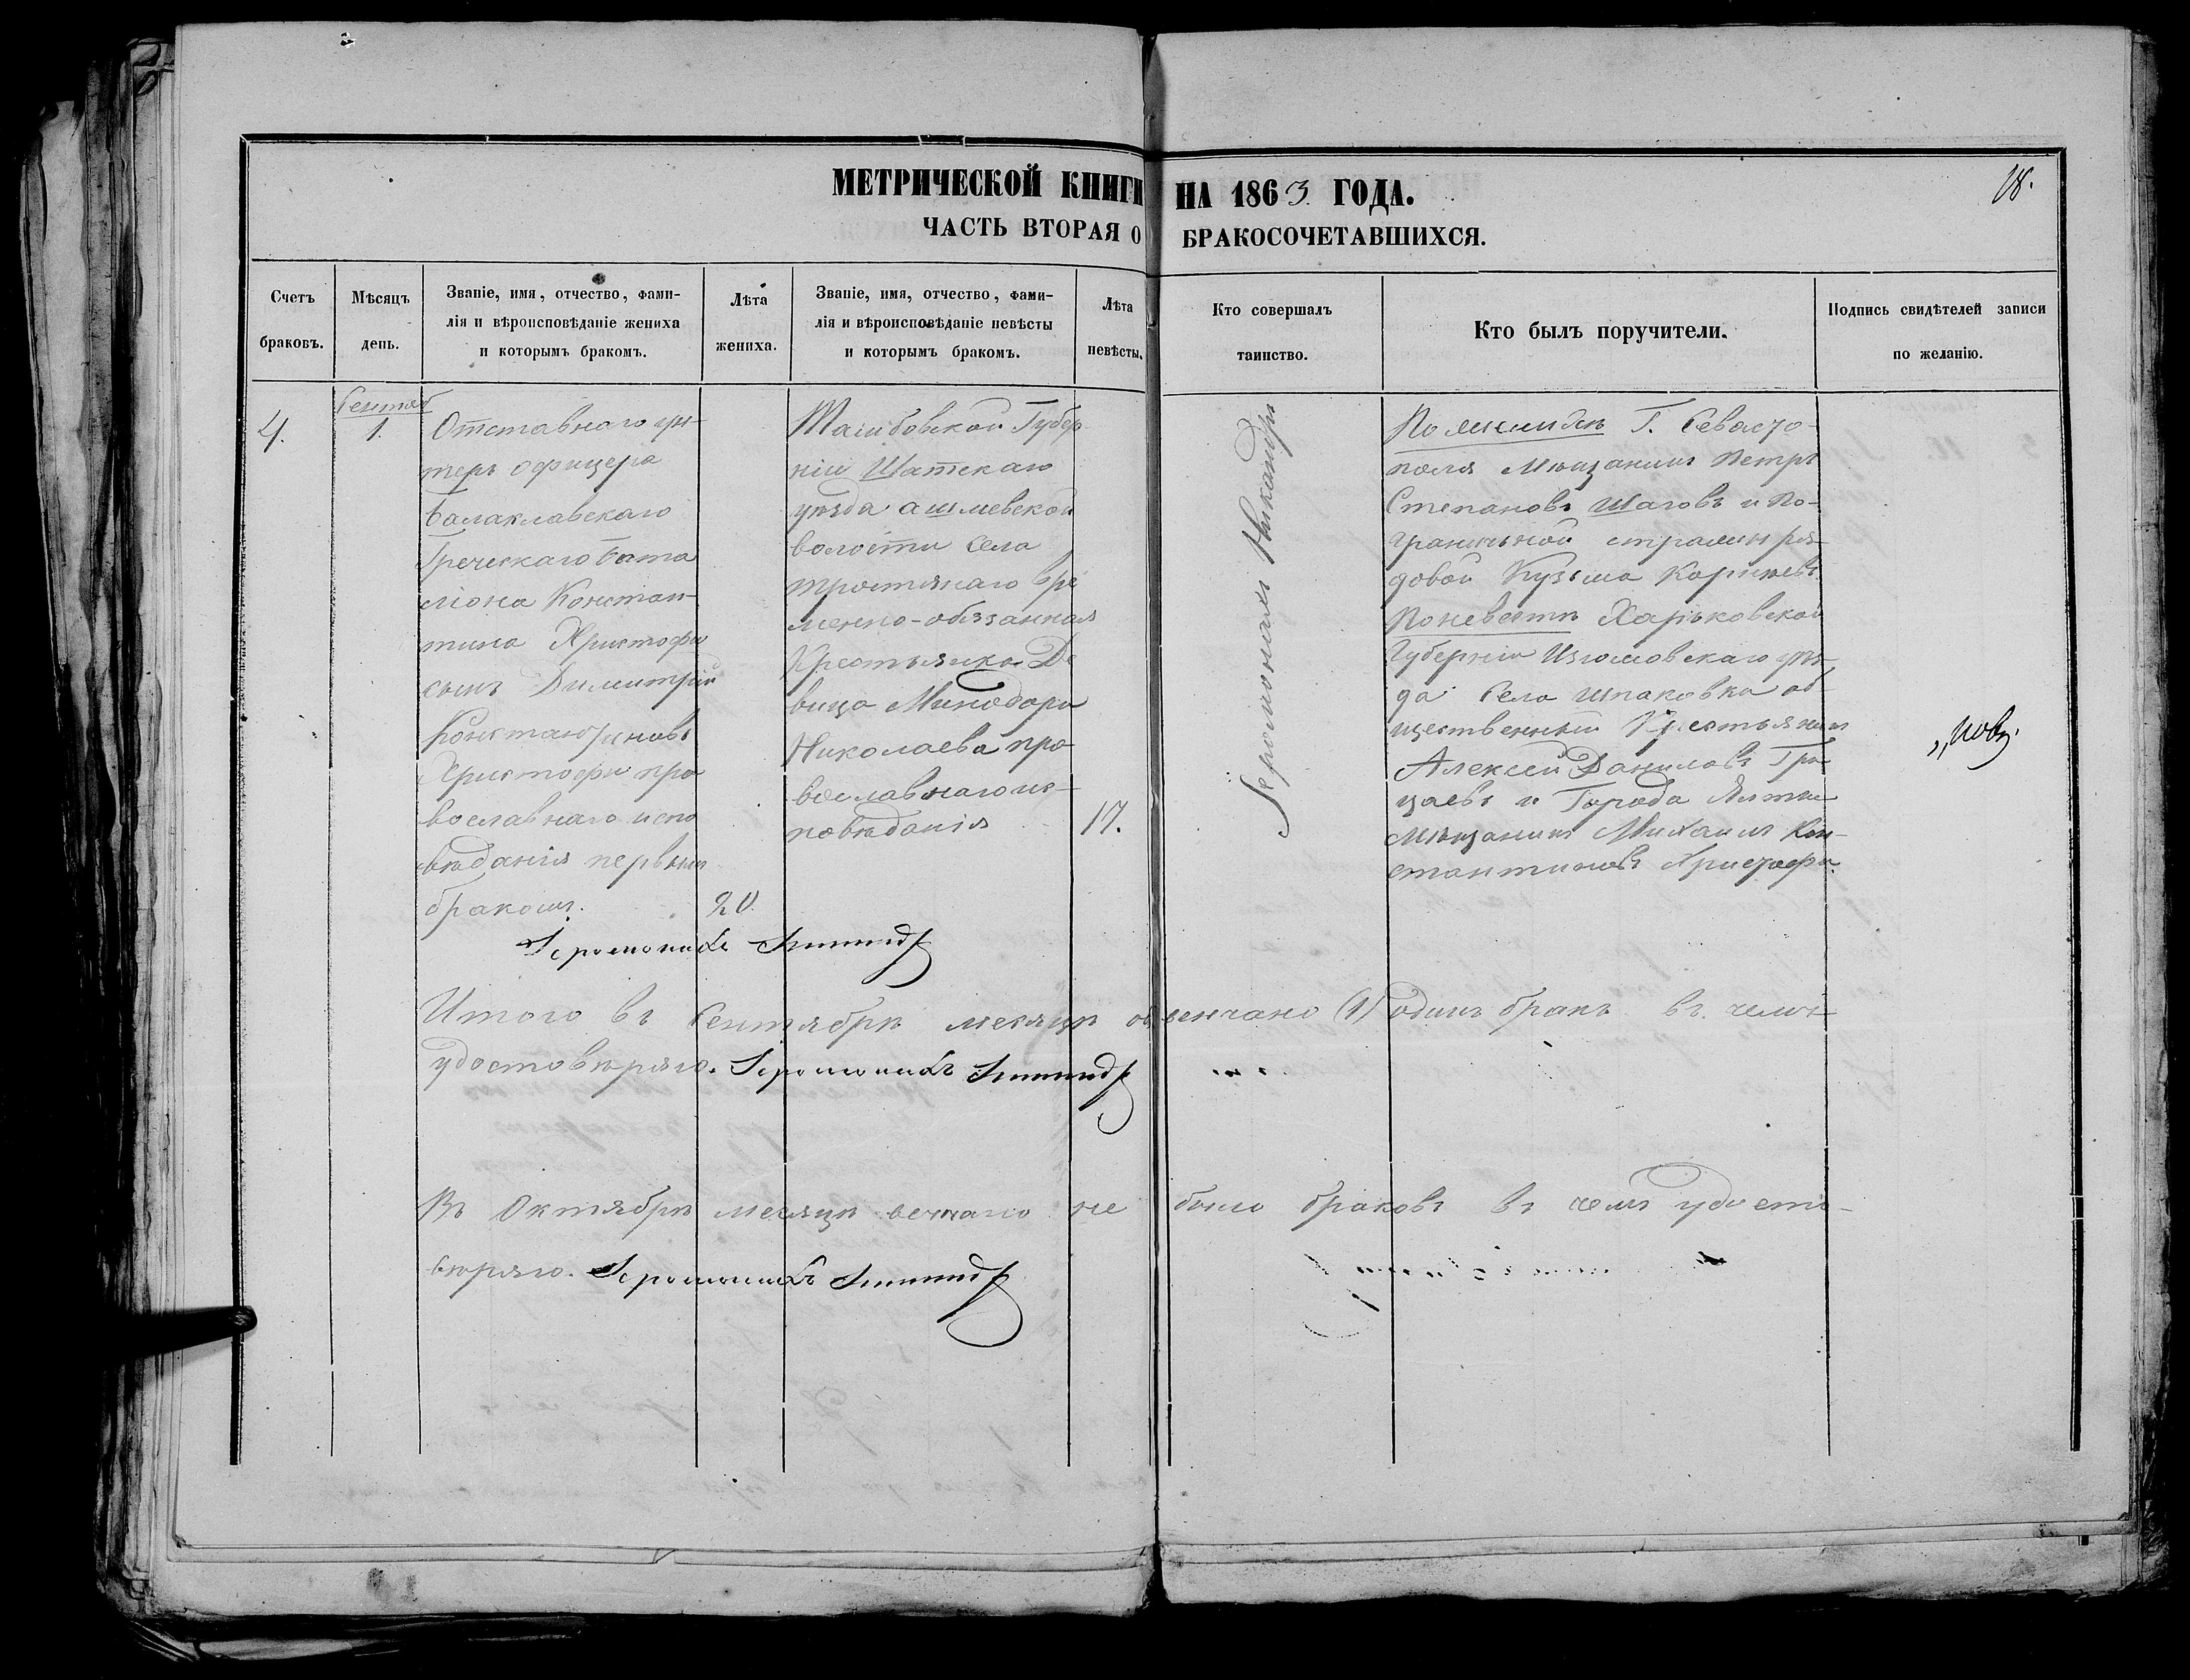 МЕТРИЧЕСКОЙ КНИГИ НА 1863 ГОДА.
18.
ЧАСТЬ ВТОРАЯ О БРАКОСОЧЕТАВШИХСЯ.
Счетъ
браковъ.
Мѣсяцъ
день.
Званіе, имя, отчество, фами-
лія и вѣроисповѣданіе жениха
и которымъ бракомъ.
Лѣта
жениха.
Званіе, имя, отчество, фами-
лія и вѣроисповѣданіе невѣсты
и которымъ бракомъ.
Лѣта
невѣсты.
Кто совершалъ
таинство.
Кто былъ поручители.
Подпись свидѣтелей записи
по желанію.
4.
Сентяб
1.
Отставнаго ун-
теръ офицера
Балаклавскаго
Греческаго Бата
ліона Констан-
тина Христофи
сынъ Димитрій
Константиновъ
Христофи пра
вославнаго испо
вѣданія первымъ
бракомъ.
20
Тамбовской Губер
ніи Шатскаго
уѣзда
волости Села
тростянаго вре
менно-обязанная
Крестьянка Де
вица Минодора
Николаева пра
вославнаго ис-
повѣданія
17.
Іеромонахъ Никандръ
По женихѣ Г. Севасто-
поля Мѣщанинъ Петръ
Степановъ Шаговъ и По-
граничной стражи ря-
довой Кузьма Корнѣевъ
По невестѣ Харьковской
Губерніи Изюмовскаго уѣз-
да Села Шпаковка об
щественный Крестьянинъ
Алексей Даниловъ
и Города Ялты
Мѣщанинъ Михаилъ Кон-
стантиновъ Христофи.
Іеромонахъ
Итого въ Сентябрѣ месяцѣ обвенчано (1) одинъ бракъ въ чемъ
удостовѣряю. Іеромонахъ
Въ Октябрѣ месяцѣ венчано не было браковъ въ чемъ удосто-
вѣряю. Іеромонахъ